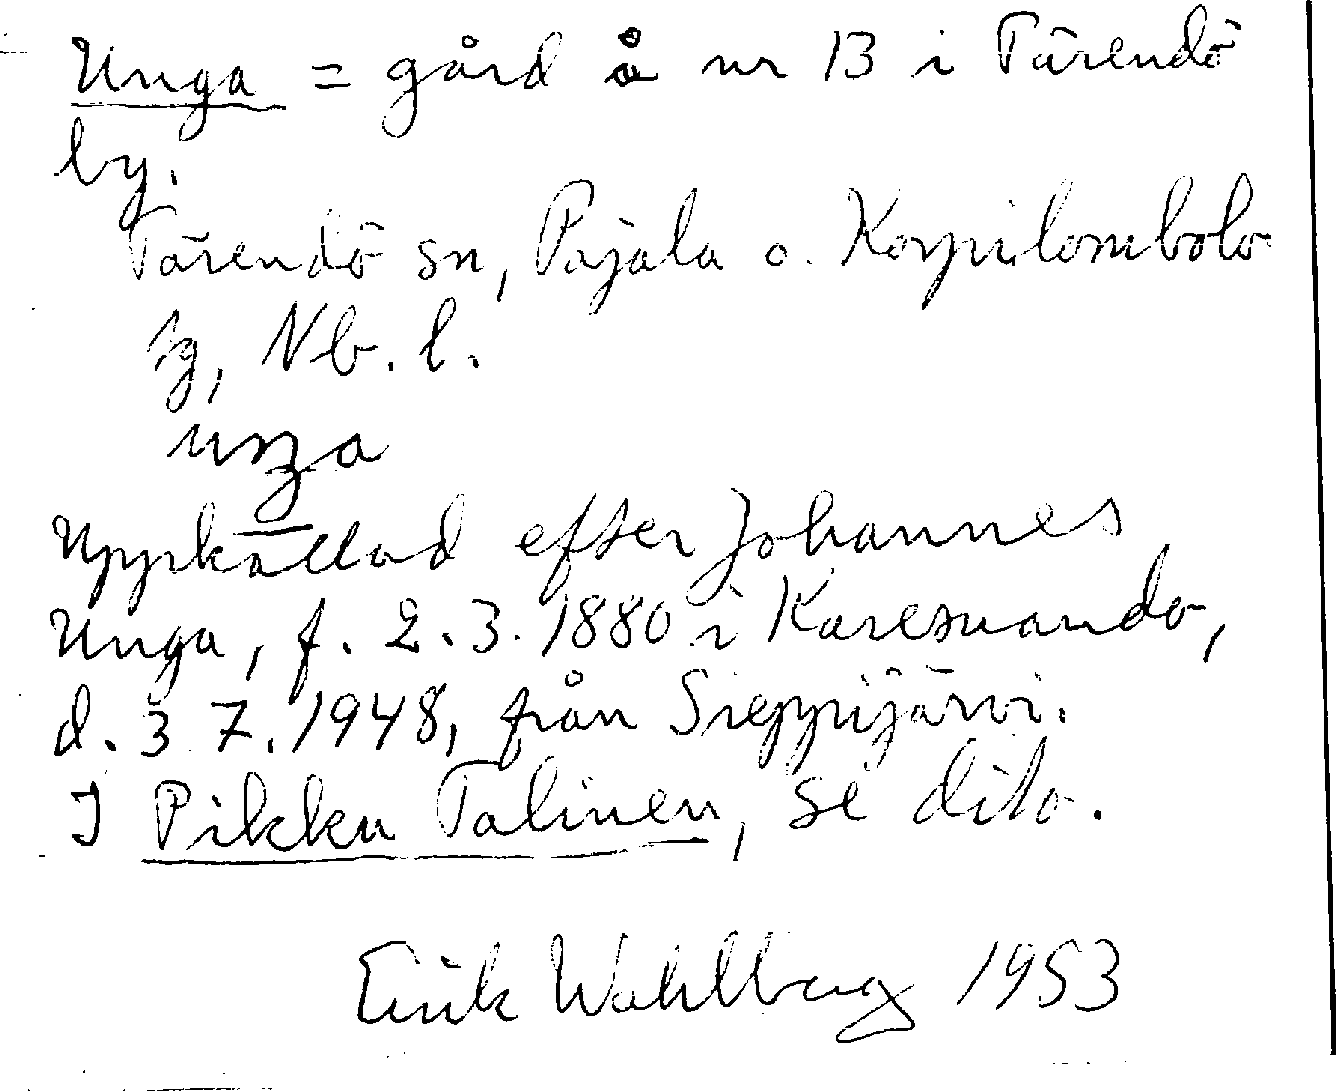 Unga = gård å nr 13 i Tärendö
by.
Tärendö sn, Pajala o. Korpilombolo
tg, Nb. l.
uŋga
Uppkallad efter Johannes
Unga, f. 2.3.1880 i Karesuando,
d. 3.7.1948, från Sieppijärvi.
I Pikku Talinen, se dito.
Erik Wahlberg 1953